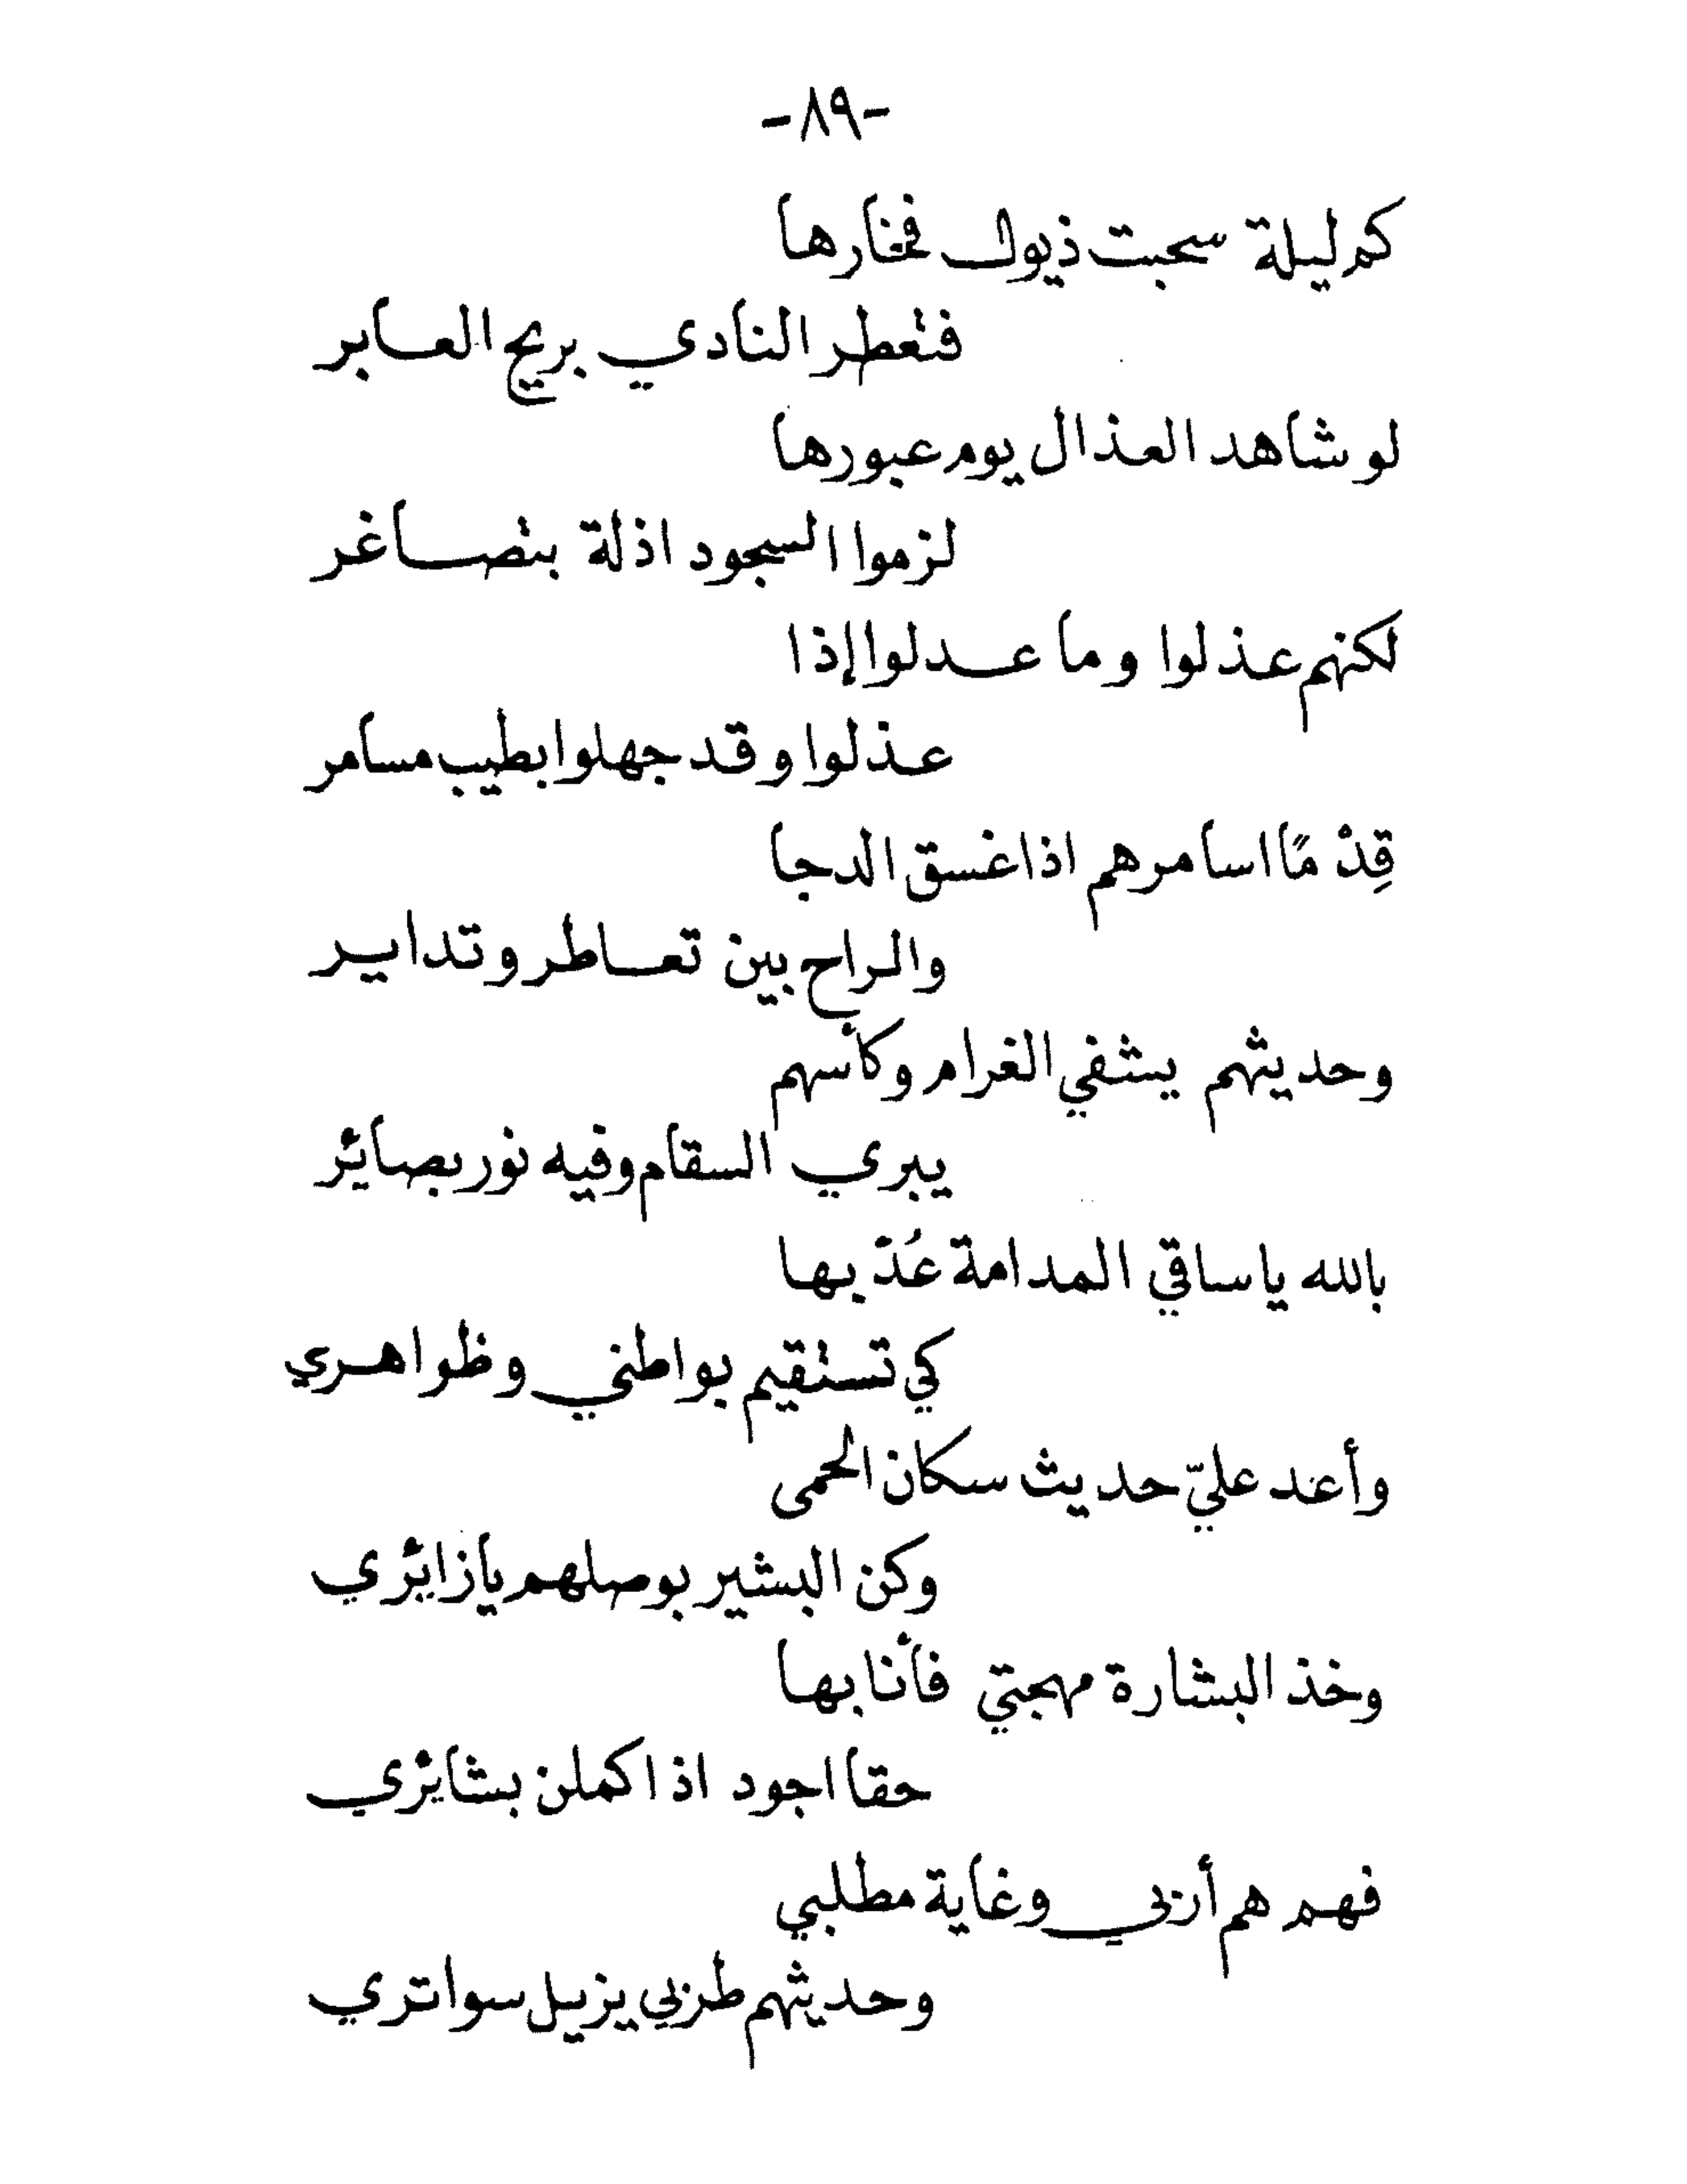 -٨٩-
كم ليلة سحبت ذيول فخارها
فتعطر النادي بريح العابر
لو شاهد العذال يوم عبورها
لزموا السجود اذلة بتصاغر
لكنهم عذلوا وما عدلوا إذا
عذلوا وقد جهلوا بطيب مسامر
قِدْمًا اسامرهم اذا غسق الدجا
والراح بين تعاطر وتداير
وحديثهم يشفي الغرام وكأسهم
يبري السقام وفيه نور بصائر
بالله يا ساقي المدامة عُدْ بها
كي تستقيم بواطني وظواهري
وأعد عليّ حديث سكان الحمى
وكن البشير بوصلهم يا زائري
وخذ البشارة مهجتي فأنا بها
حقا اجود اذا كملن بشائري
فهم هم أربي وغاية مطلبي
وحديثهم طربي يزيل سواتري